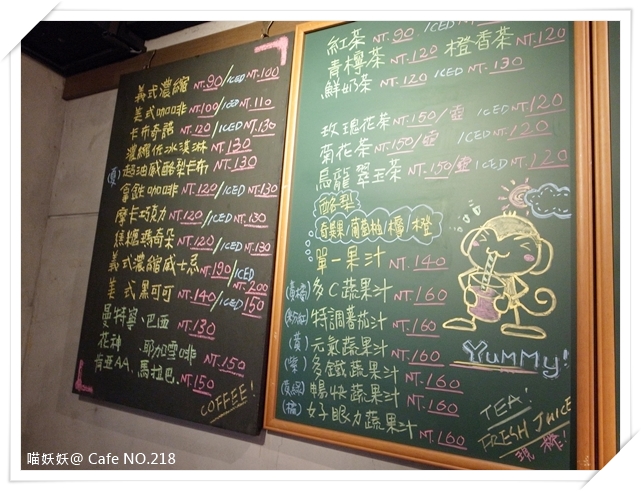 義式濃縮 NT.90/ICED NT.100
美式咖啡 NT.100/ICED NT.110
卡布奇諾 NT.120/ICED NT.130
濃縮佐冰淇淋 NT.130
超油感酪梨卡布 NT.130
拿鐵咖啡 NT.120/ICED NT.130
摩卡巧克力 NT.120/ICED NT.130
焦糖瑪奇朵 NT.120/ICED NT.130
義式濃縮威士忌 NT.190/ICED NT.200
美式黑可可 NT.140/ICED 150
曼特寧、巴西 NT.130
花神、耶加雪啡 NT.150
肯亞AA、馬拉巴 NT.150
COFFEE!
紅茶 NT.90 ICED NT.100
青檸茶 NT.120 橙香茶 NT.120
鮮奶茶 NT.120 ICED NT.130
玫瑰花茶 NT.150/壺 ICED NT.120
菊花茶 NT.150/壺 ICED NT.120
烏龍翠玉茶 NT.150/壺 ICED NT.120
酪梨
百香果/葡萄柚/檸/橙
單一果汁 NT.140
(黃橘) 多C蔬果汁 NT.160
(粉紅) 特調蕃茄汁 NT.160
(黃) 元氣蔬果汁 NT.160
(紫) 多鐵蔬果汁 NT.160
(黃綠) 暢快蔬果汁 NT.160
(橘) 女子眼力蔬果汁 NT.160
YuMMy!
TEA!
FRESH JUICE
現榨!
喵妖妖@ Cafe NO.218